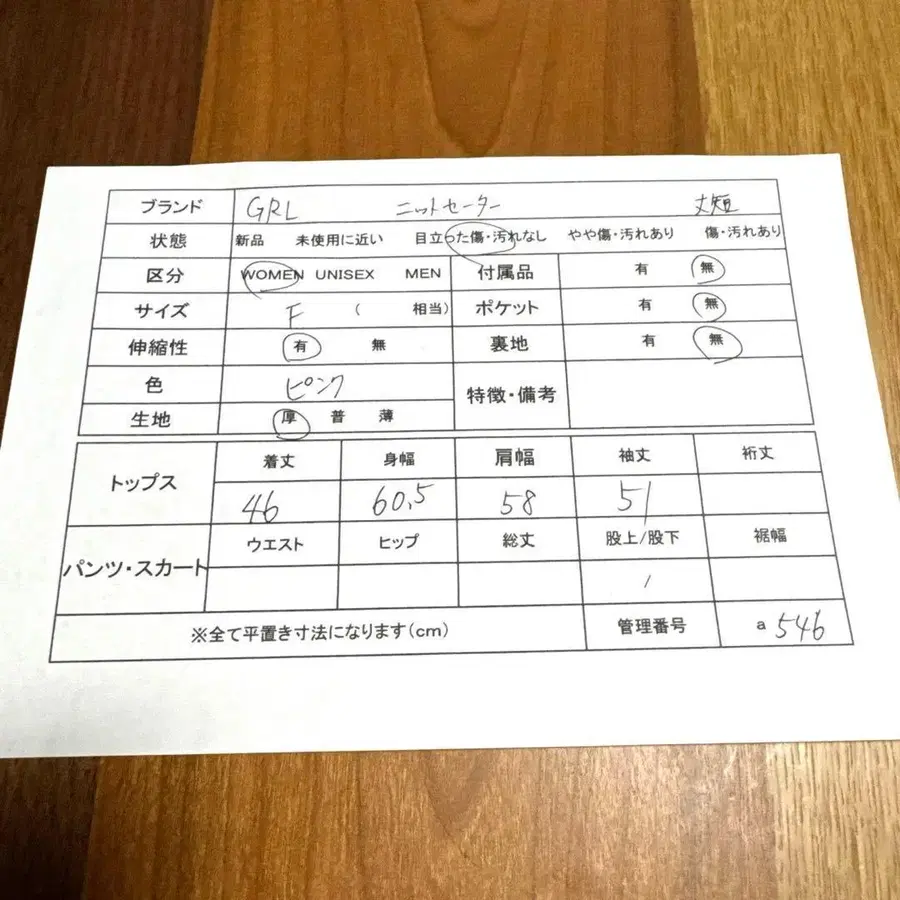 ブランド GRL ニットセーター 丈短
状態 新品 未使用に近い 目立った傷・汚れなし やや傷・汚れあり 傷・汚れあり
区分 WOMEN UNISEX MEN 付属品 有 無
サイズ F ( 相当) ポケット 有 無
伸縮性 有 無 裏地 有 無
色 ピンク 特徴・備考
生地 厚 普 薄
トップス 着丈 身幅 肩幅 袖丈 裄丈
46 60.5 58 51
パンツ・スカート ウエスト ヒップ 総丈 股上/股下 裾幅
/
※全て平置き寸法になります(cm) 管理番号 a 546